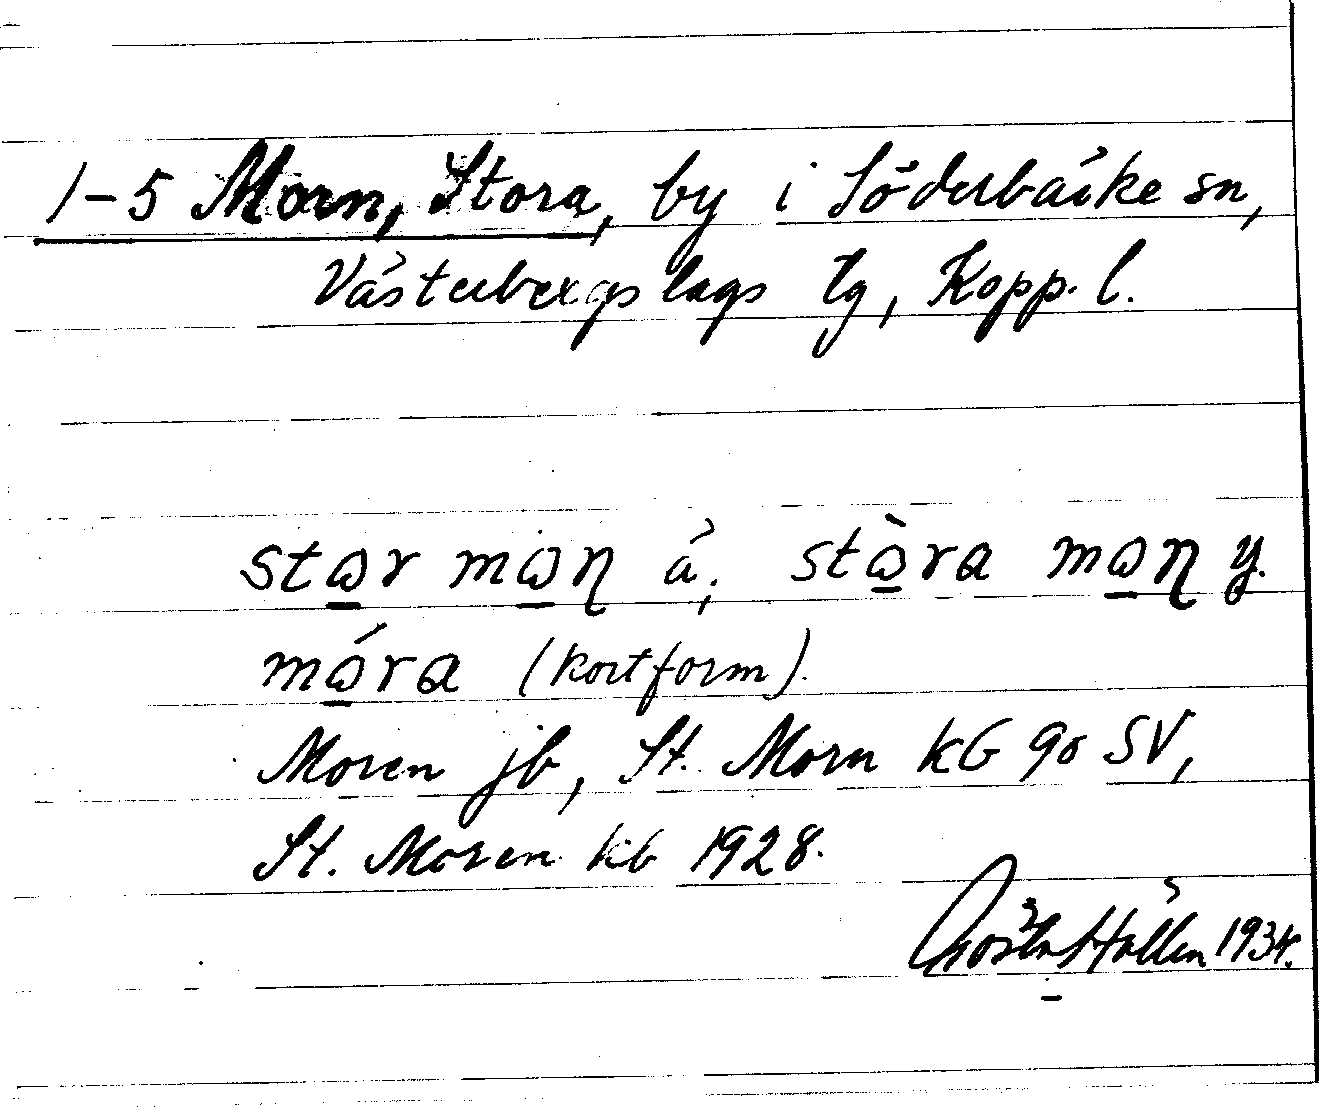 1-5 Morn, Stora, by i Söderbärke sn,
Västerbergslags tg, Kopp. l.
stꞷ̱r mꞷ̱ɳ ä, stꞷ̱̀ra mꞷ̱ɳ y.
mꞷ̱́ra (kortform).
Moren jb, St. Morn KG 90 SV,
St. Moren kb 1928.
Gösta Hållen 1934.